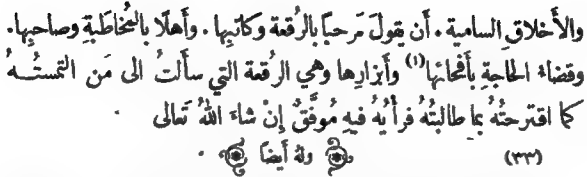 والأَخلاقِ السامية. أَن يقولَ مَرحبًا بالرُقعة وكاتبِها. وأَهلًا بالمُخاطَبةِ وصاحبِها.
وقضاءَ الحاجةِ بأَفحائها(١) وأَبزارِها وهي الرُقعة التي سأَلتُ الى مَن التمستُـهُ
كما اقترحتُهُ بما طالبتُهُ فرأيُهُ فيهِ مُوفَّقٌ إِنْ شاءَ اللهُ تَعالى
(٣٣) وله أَيضًا